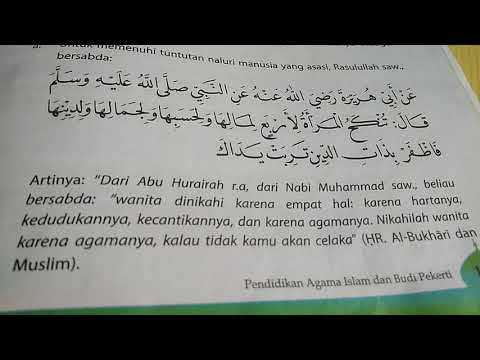 a. Untuk memenuhi tuntutan naluri manusia yang asasi, Rasulullah saw.,
bersabda:
عَنْ أَبِي هُرَيْرَةَ رَضِيَ اللهُ عَنْهُ عَنِ النَّبِيِّ صَلَّى اللَّهُ عَلَيْهِ وَسَلَّمَ
قَالَ: تُنْكَحُ الْمَرْأَةُ لِأَرْبَعٍ لِمَالِهَا وَلِحَسَبِهَا وَلِجَمَالِهَا وَلِدِيْنِهَا
فَاظْفَرْ بِذَاتِ الدِّيْنِ تَرِبَتْ يَدَاكَ
Artinya: "Dari Abu Hurairah r.a, dari Nabi Muhammad saw., beliau
bersabda: "wanita dinikahi karena empat hal: karena hartanya,
kedudukannya, kecantikannya, dan karena agamanya. Nikahilah wanita
karena agamanya, kalau tidak kamu akan celaka" (HR. Al-Bukhāri dan
Muslim).
Pendidikan Agama Islam dan Budi Pekerti